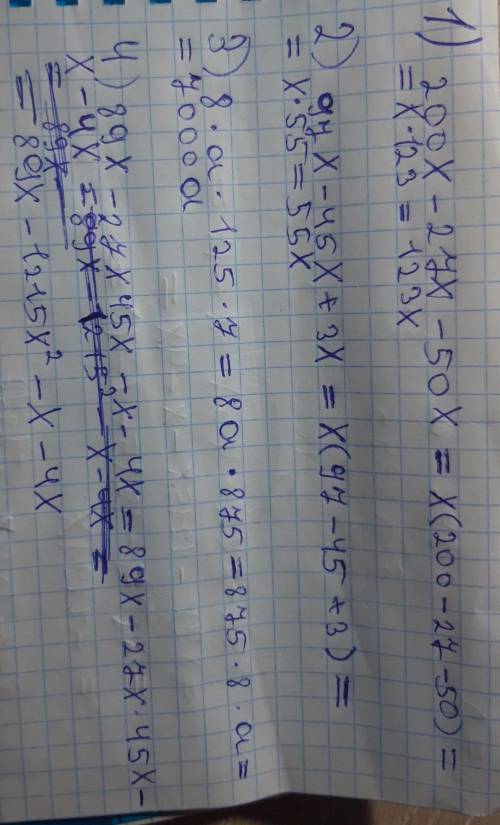 1) 200x - 27x - 50x = x(200 - 27 - 50) =
= x · 123 = 123x
2) 97x - 45x + 3x = x(97 - 45 + 3) =
= x · 55 = 55x
3) 8 · a · 125 · 7 = 8a · 875 = 875 · 8 · a =
= 7000a
4) 89x - 27x 45x - x - 4x = 89x - 27x · 45x -
x - 4x = 89x = 1215² - x - 4x =
= 89x
= 89x - 1215x² - x - 4x